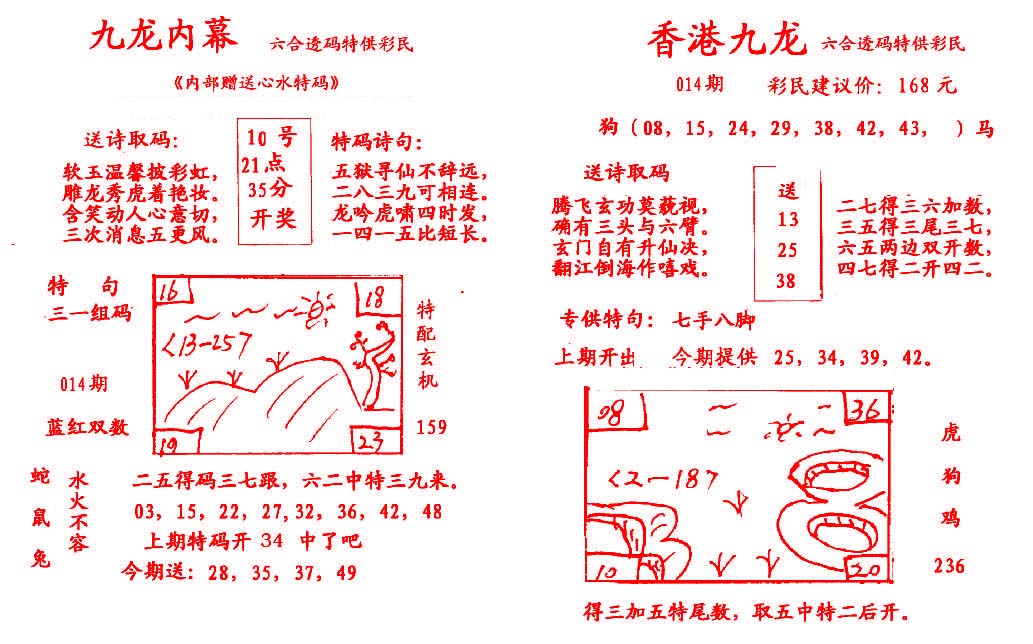 九龙内幕 六合透码特供彩民
《内部赠送心水特码》
送诗取码：
软玉温馨披彩虹，
雕龙秀虎着艳妆。
含笑动人心意切，
三次消息五更风。
10 号
21点
35分
开奖
特码诗句：
五狱寻仙不辞远，
二八三九可相连。
龙吟虎啸四时发，
一四一五比短长。
特 句
三一组码
014期
蓝红双数
16
18
<13-25>
19
23
特配玄机
159
蛇鼠兔
水火不容
二五得码三七跟，六二中特三九来。
03，15，22，27,32，36，42，48
上期特码开 34 中了吧
今期送：28，35，37，49
香港九龙 六合透码特供彩民
014期 彩民建议价：168元
狗（08，15，24，29，38，42，43， ）马
送诗取码
腾飞玄功莫藐视，
确有三头与六臂。
玄门自有升仙决，
翻江倒海作嘻戏。
送
13
25
38
二七得三六加数，
三五得三尾三七，
六五两边双开数，
四七得二开四二。
专供特句：七手八脚
上期开出 今期提供 25，34，39，42。
08
36
<2-18>
10
20
虎
狗
鸡
236
得三加五特尾数，取五中特二后开。